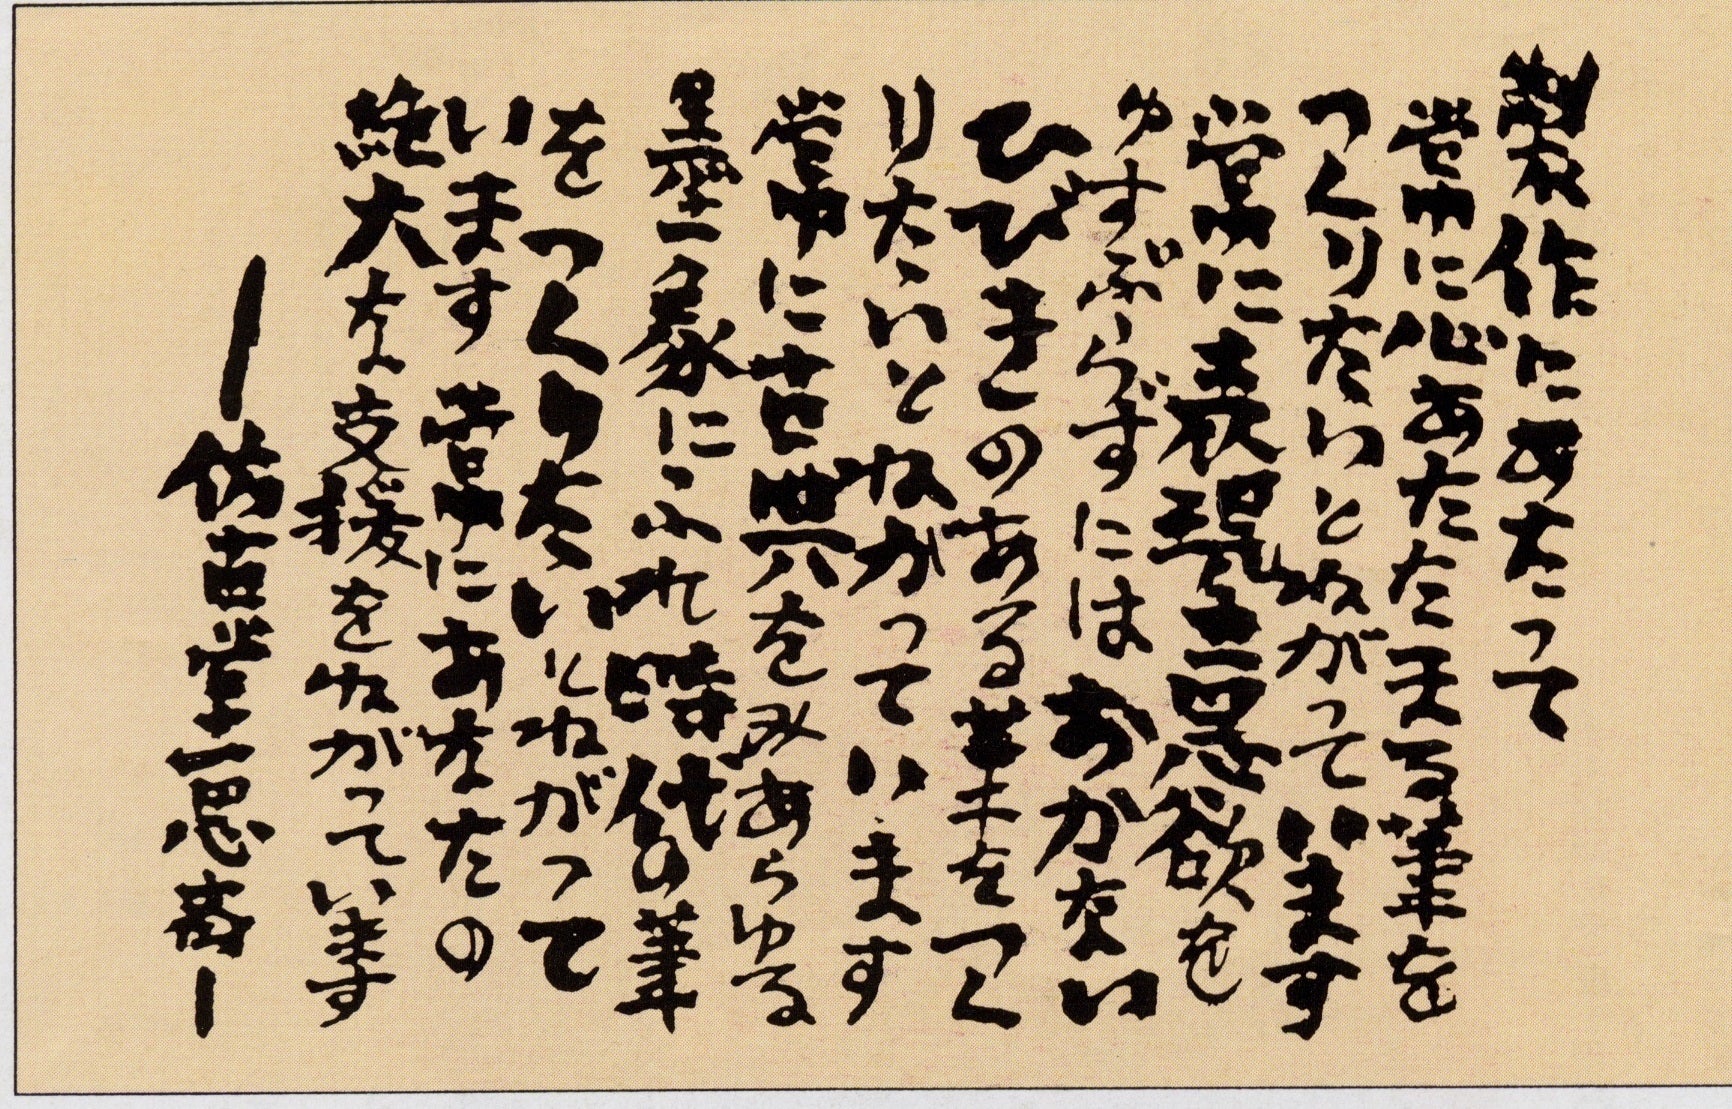 製作にあたって
常に心あたたまる筆を
つくりたいとねがっています
常に表現意欲を
ゆすぶらずにはおかない
ひびきのある筆をつく
りたいとねがっています
常に古典をみあらゆる
墨象にふれ時代の筆
をつくりたいとねがって
います 常にあなたの
絶大な支援をねがっています
―仿古堂思斎―